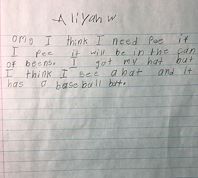 Aliyah w
OMG I think I need Pee if
I Pee it will be in the can
of beens. I got my hat but
I think I see a hat and it
has a base ball bat.